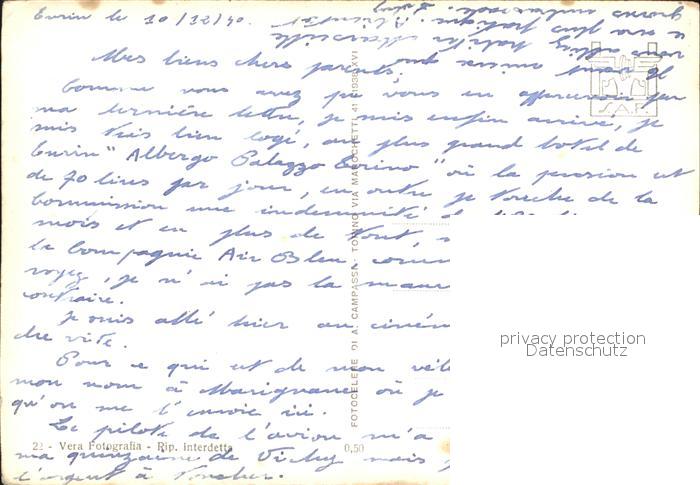 Turin le 10/12/40.
Mes biens chers parents,
Comme vous avez pu vous en apercevoir par
ma dernière lettre, je suis enfin arrivé, je
suis très bien logé, au plus grand hotel de
Turin "Albergo Palazzo Torino" où la pension est
de 70 lires par jour, en outre je touche de la
Commission une indemnité
mois et en plus de tout,
la Compagnie Air Bleu, comm
voyez, je n'ai pas la mauv
contraire.
Je suis allé hier au ciném
dre vite.
Pour ce qui est de mon vél
mon nom à Marignane où je
qu'on me l'envoie ici.
Le pilote de l'avion m'a
ma quinzaine de Vichy mais
l'argent à toucher.
22 - Vera Fotografia - Rip. interdetta
0,50
FOTOCELERE DI A. CAMPASSI - TORINO VIA MAROCHETTI 41 (1938 XVI
S.A.F.
privacy protection
Datenschutz